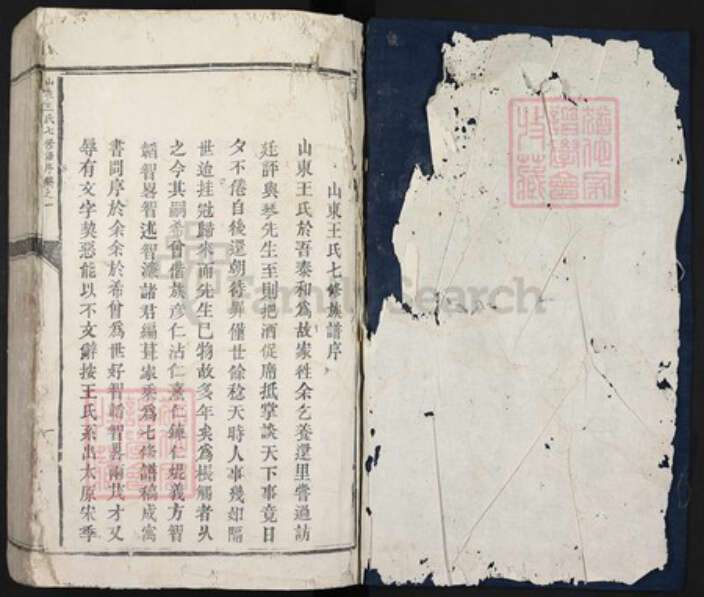 山東王氏七修族譜序
山東王氏於吾泰和為故家牲余乞養還里嘗過訪
廷評與琴先生至則把酒促席抵掌談天下事竟日
夕不倦自後還朝待罪僅廿餘稔天時人事幾如隔
世迨挂冠歸來而先生已物故多年矣為棖觸者久
之今其嗣希曾偕族彥仁沾仁 仁鍊仁 義方智
韜智畧智述智濂諸君編葺家乘為七修譜稿成寓
書問序於余余於希曾為世好智韜智畧兩茂才又
辱有文字契惡能以不文辭按王氏系出太原宋季
山東王氏七修譜序 卷之一
FamilySearch